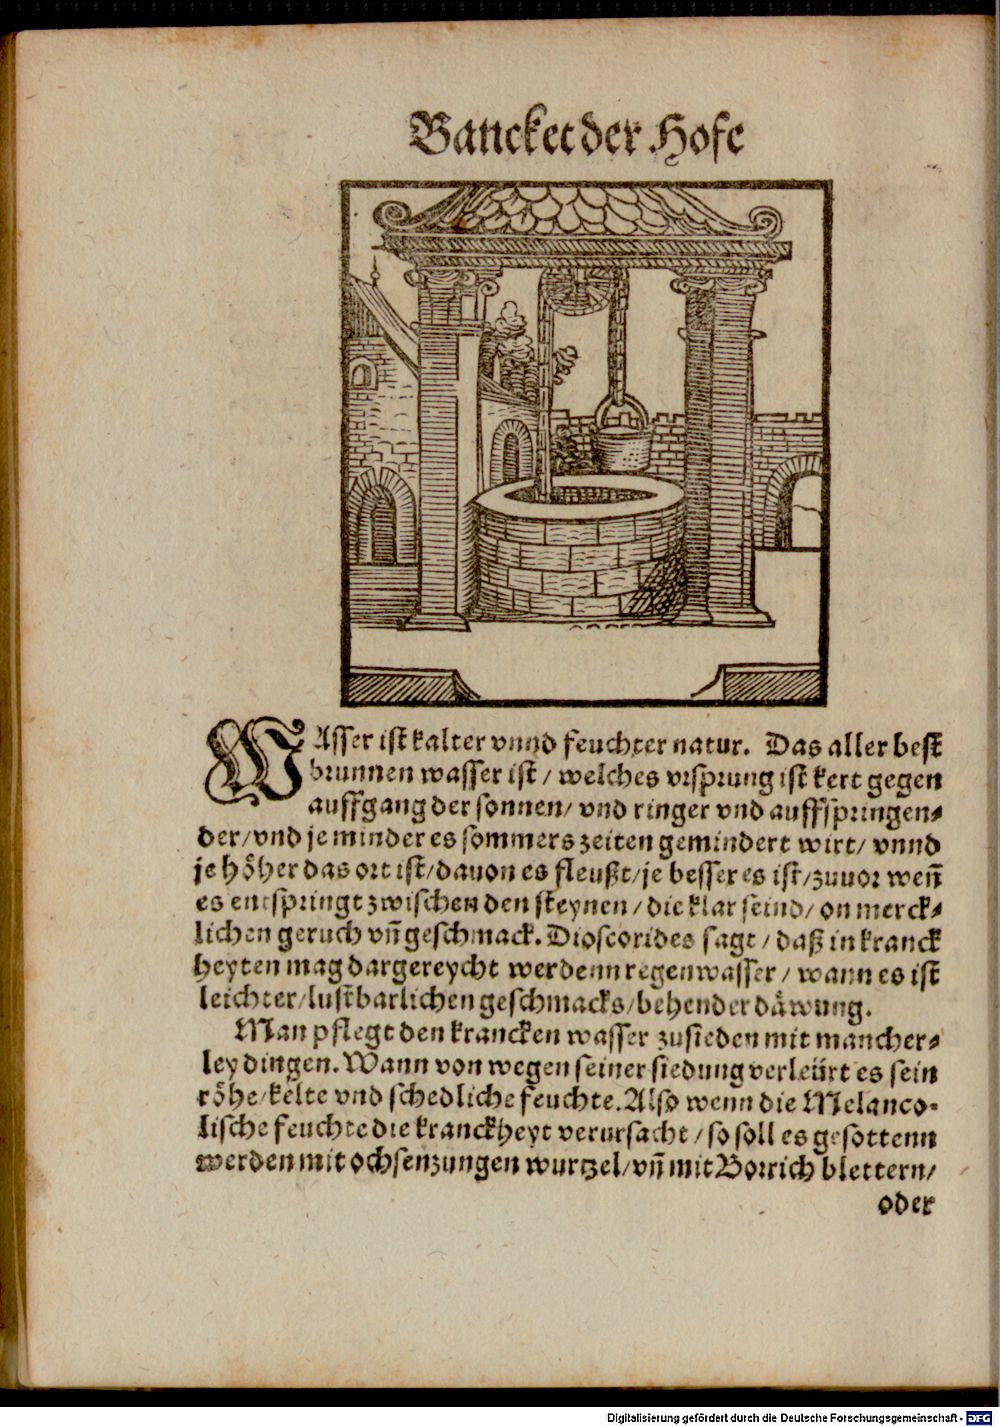 Bancket der Hofe
WAsser ist kalter vnnd feuchter natur. Das aller best
brunnen wasser ist / welches vrsprung ist kert gegen
auffgang der sonnen / vnd ringer vnd auffspringen⸗
der / vnd je minder es sommers zeiten gemindert wirt / vnnd
je hoͤher das ort ist / dauon es fleußt / je besser es ist / zuuor weñ
es entspringt zwischen den steynen / die klar seind / on merck⸗
lichen geruch vñ geschmack. Dioscorides sagt / daß in kranck
heyten mag dargereycht werdenn regenwasser / wann es ist
leichter / lustbarlichen geschmacks / behender daͤwung.
Man pflegt den krancken wasser zusieden mit mancher⸗
ley dingen. Wann von wegen seiner siedung verleürt es sein
roͤhe / kelte vnd schedliche feuchte. Also wenn die Melanco⸗
lische feuchte die kranckheyt verursacht / so soll es gesottenn
werden mit ochsenzungen wurtzel / vñ mit Borrich blettern /
oder
Digitalisierung gefördert durch die Deutsche Forschungsgemeinschaft - DFG